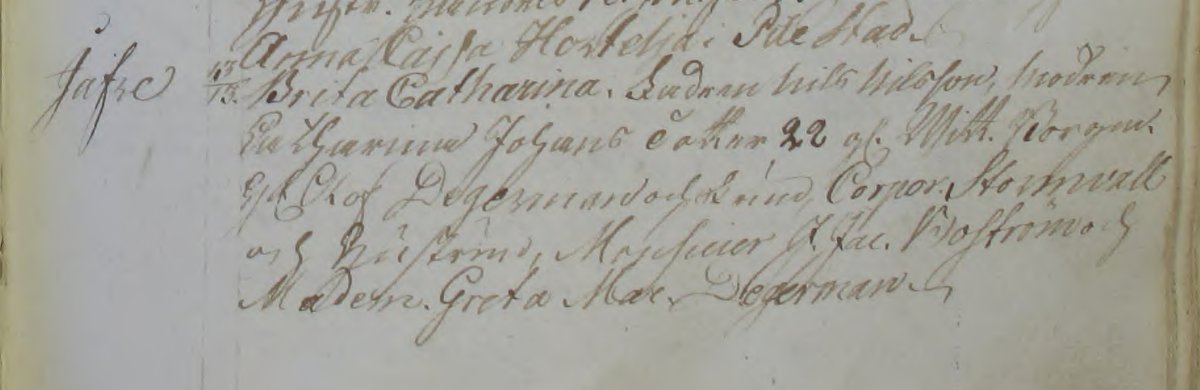 Anna Caisa Hortelja i Pite Stad.
Jäfre 13/13. Brita Catharina. Fadren Nils Nilsson, Modren
Catharina Johans Dotter 22 åhr. Witt. Borgm.
Olof Degerman och Qvinna, Corpor. Stormvall
och Hustrund, Monsieur J. Jac. Boström och
Madem. Greta Mar. Degerman.